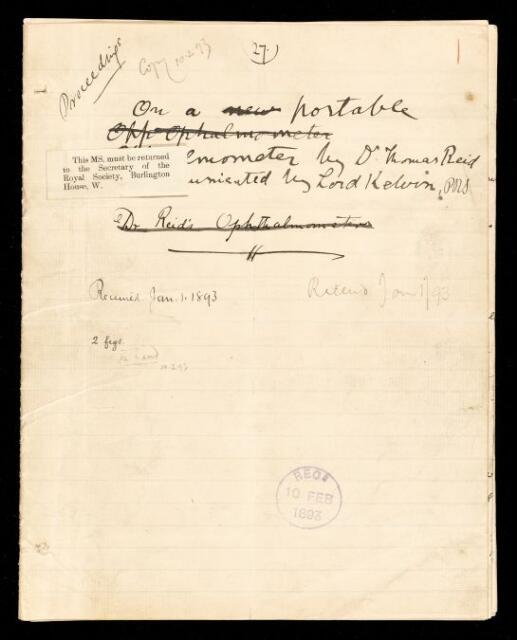 Proceedings
Copy 10.2.93
27.
On a new portable
Ophthalmometer
mometer by Dr. Thomas Reid
unicated by Lord Kelvin, PRS
This MS. must be returned
to the Secretary of the
Royal Society, Burlington
House, W.
Dr Reid's Ophthalmometer
Received Jan. 1. 1893
Received Jan 1/93
2 figs.
10.2.93
RECD
10 FEB
1893